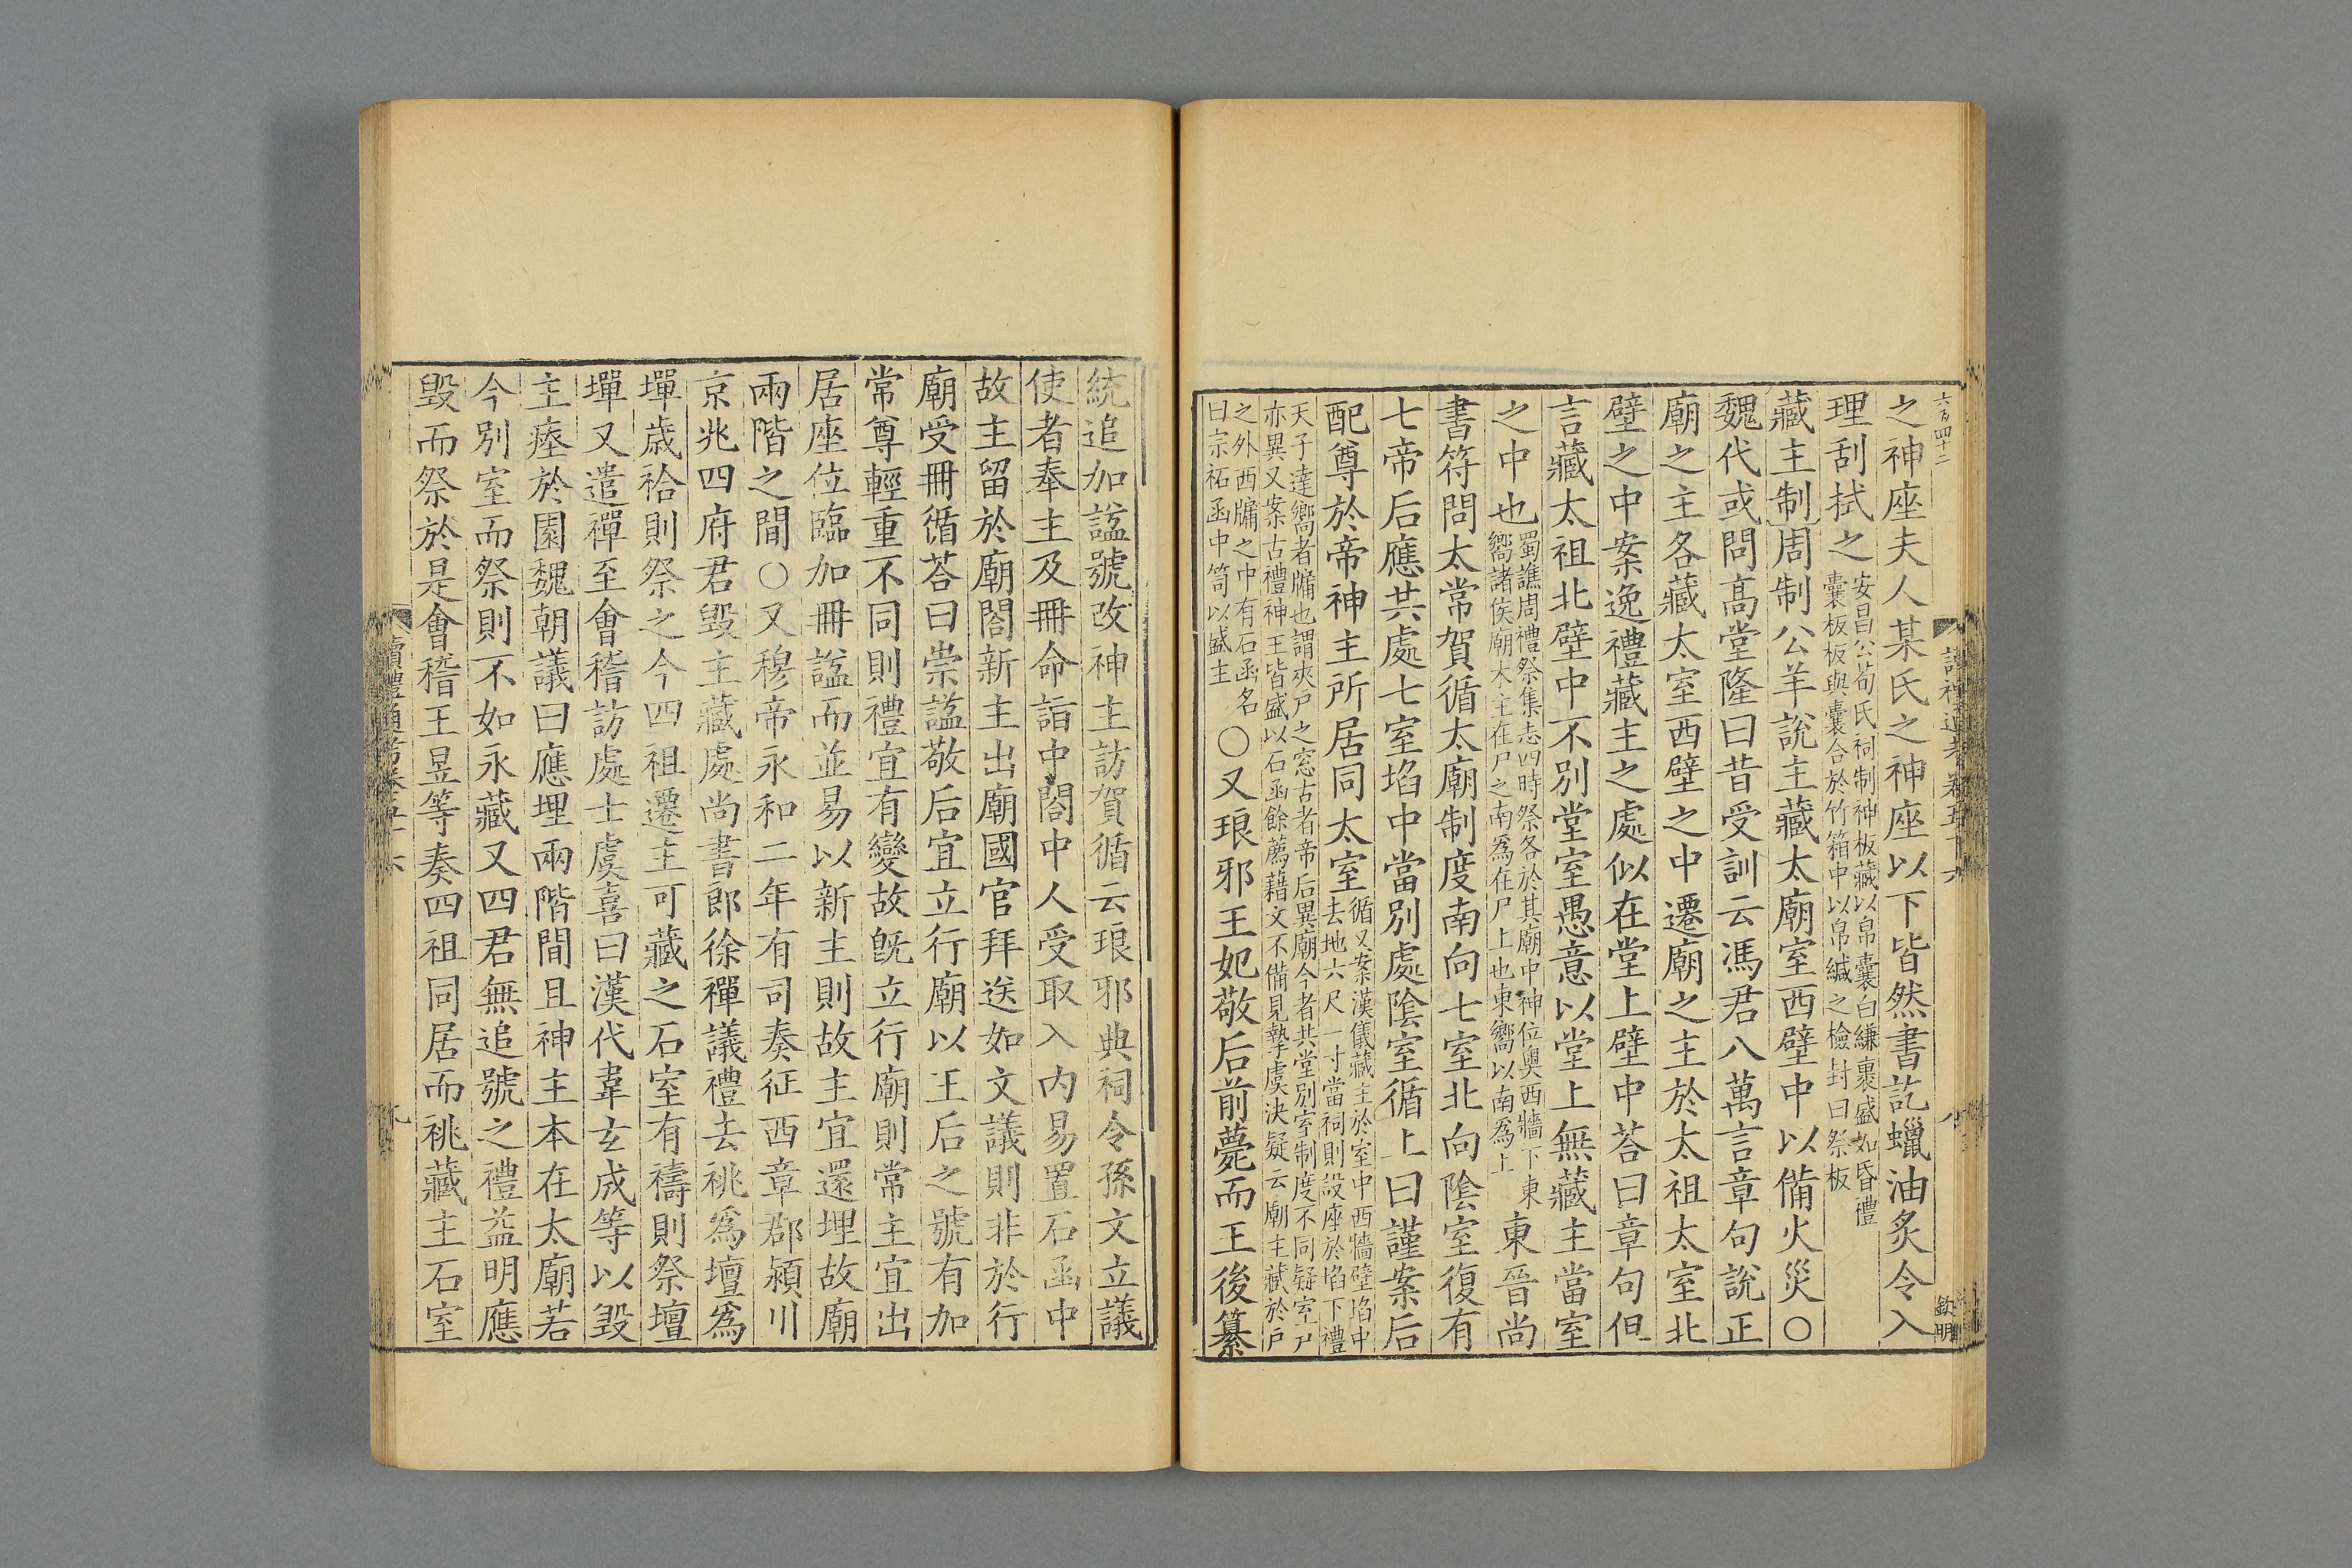 六百四十二
之神座夫人某氏之神座以下皆然書訖蠟油炙令入
理刮拭之安昌公荀氏祠制神板藏以帛囊白縑裹盛如昏禮囊板板與囊合於竹箱中以帛緘之檢封曰祭板
藏主制周制公羊說主藏太廟室西壁中以備火災〇
魏代或問高堂隆曰昔受訓云馮君八萬言章句說正
廟之主各藏太室西壁之中遷廟之主於太祖太室北
壁之中案逸禮藏主之處似在堂上壁中荅曰章句但
言藏太祖北壁中不別堂室愚意以堂上無藏主當室
之中也蜀譙周禮祭集志四時祭各於其廟中神位奥西牆下東嚮諸侯廟木主在尸之南爲在尸上也東嚮以南爲上東晉尚
書符問太常賀循太廟制度南向七室北向陰室復有
七帝后應共處七室埳中當別處陰室循上曰謹案后
配尊於帝神主所居同太室循又案漢儀藏主於室中西牆壁埳中去地六尺一寸當祠則設座於埳下禮
天子達嚮者牖也謂夾戶之窓古者帝后異廟今者共堂別室制度不同疑室戶亦異又案古禮神主皆盛以石函餘薦藉文不備見摯虞決疑云廟主藏於戶
之外西牖之中有石函名曰宗祏函中笥以盛主〇又琅邪王妃敬后前薨而王後纂
欽明
統追加諡號改神主訪賀循云琅邪典祠令孫文立議
使者奉主及冊命詣中閤中人受取入内易置石函中
故主留於廟閤新主出廟國官拜送如文議則非於行
廟受冊循荅曰崇諡敬后宜立行廟以王后之號有加
常尊輕重不同則禮宜有變故旣立行廟則常主宜出
居座位臨加冊諡而並易以新主則故主宜還埋故廟
兩階之間〇又穆帝永和二年有司奏征西章郡潁川
京兆四府君毀主藏處尚書郎徐禪議禮去祧爲壇爲
墠歲祫則祭之今四祖遷主可藏之石室有禱則祭壇
墠又遣禪至會稽訪處士虞喜曰漢代韋玄成等以毀
主瘞於園魏朝議曰應埋兩階間且神主本在太廟若
今別室而祭則不如永藏又四君無追號之禮益明應
毀而祭於是會稽王昱等奏四祖同居而祧藏主石室